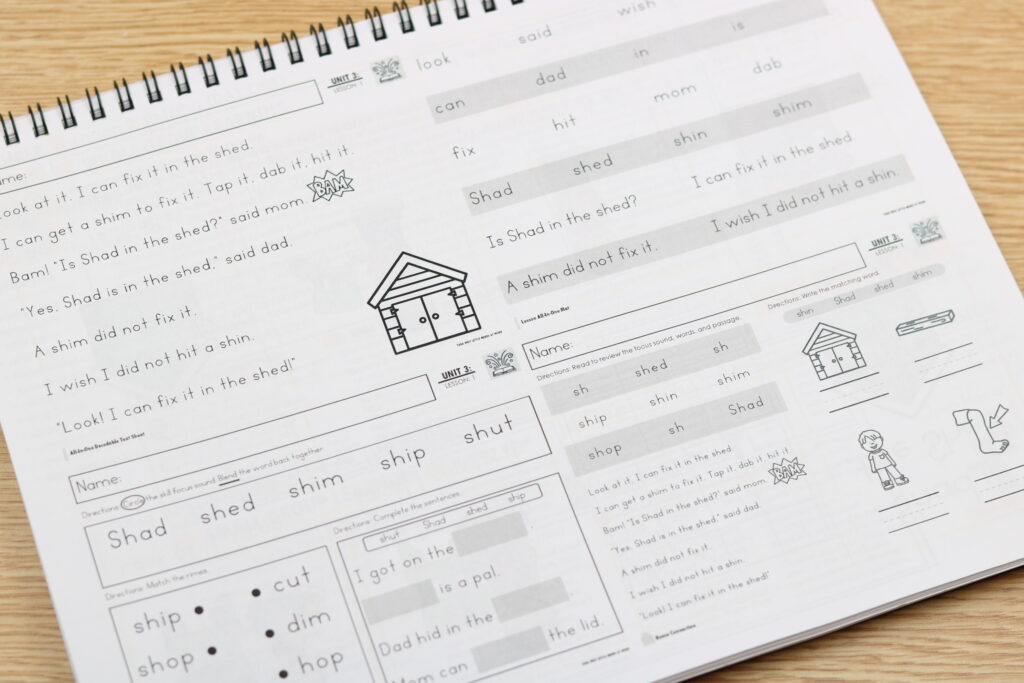 UNIT 3:
LESSON: 1
Look at it. I can fix it in the shed.
I can get a shim to fix it. Tap it, dab it, hit it.
BAM
Bam! "Is Shad in the shed?" said mom.
"Yes, Shad is in the shed," said dad.
A shim did not fix it.
I wish I did not hit a shin.
"Look! I can fix it in the shed!"
All-in-One Decodable Text Sheet
look said wish
can dad in is
fix hit mom dab
Shad shed shin shim
Is Shad in the shed? I can fix it in the shed
A shim did not fix it. I wish I did not hit a shin.
UNIT 3:
LESSON: 1
Name:
Directions: Circle the skill focus sound. Blend the word back together.
Shad shed shim ship shut
Directions: Match the rimes.
ship cut
shop dim
hop
Directions: Complete the sentences.
shut Shad shed ship
I got on the .
is a pal.
Dad hid in the .
Mom can the lid.
UNIT 3:
LESSON: 1
Name:
Directions: Read to review the focus sound, words, and passage.
sh shed sh
ship shin shim
shop sh Shad
Look at it. I can fix it in the shed.
I can get a shim to fix it. Tap it, dab it, hit it.
BAM
Bam! "Is Shad in the shed?" said mom.
"Yes, Shad is in the shed," said dad.
A shim did not fix it.
I wish I did not hit a shin.
"Look! I can fix it in the shed!"
Home Connection
Directions: Write the matching word.
shin Shad shed shim